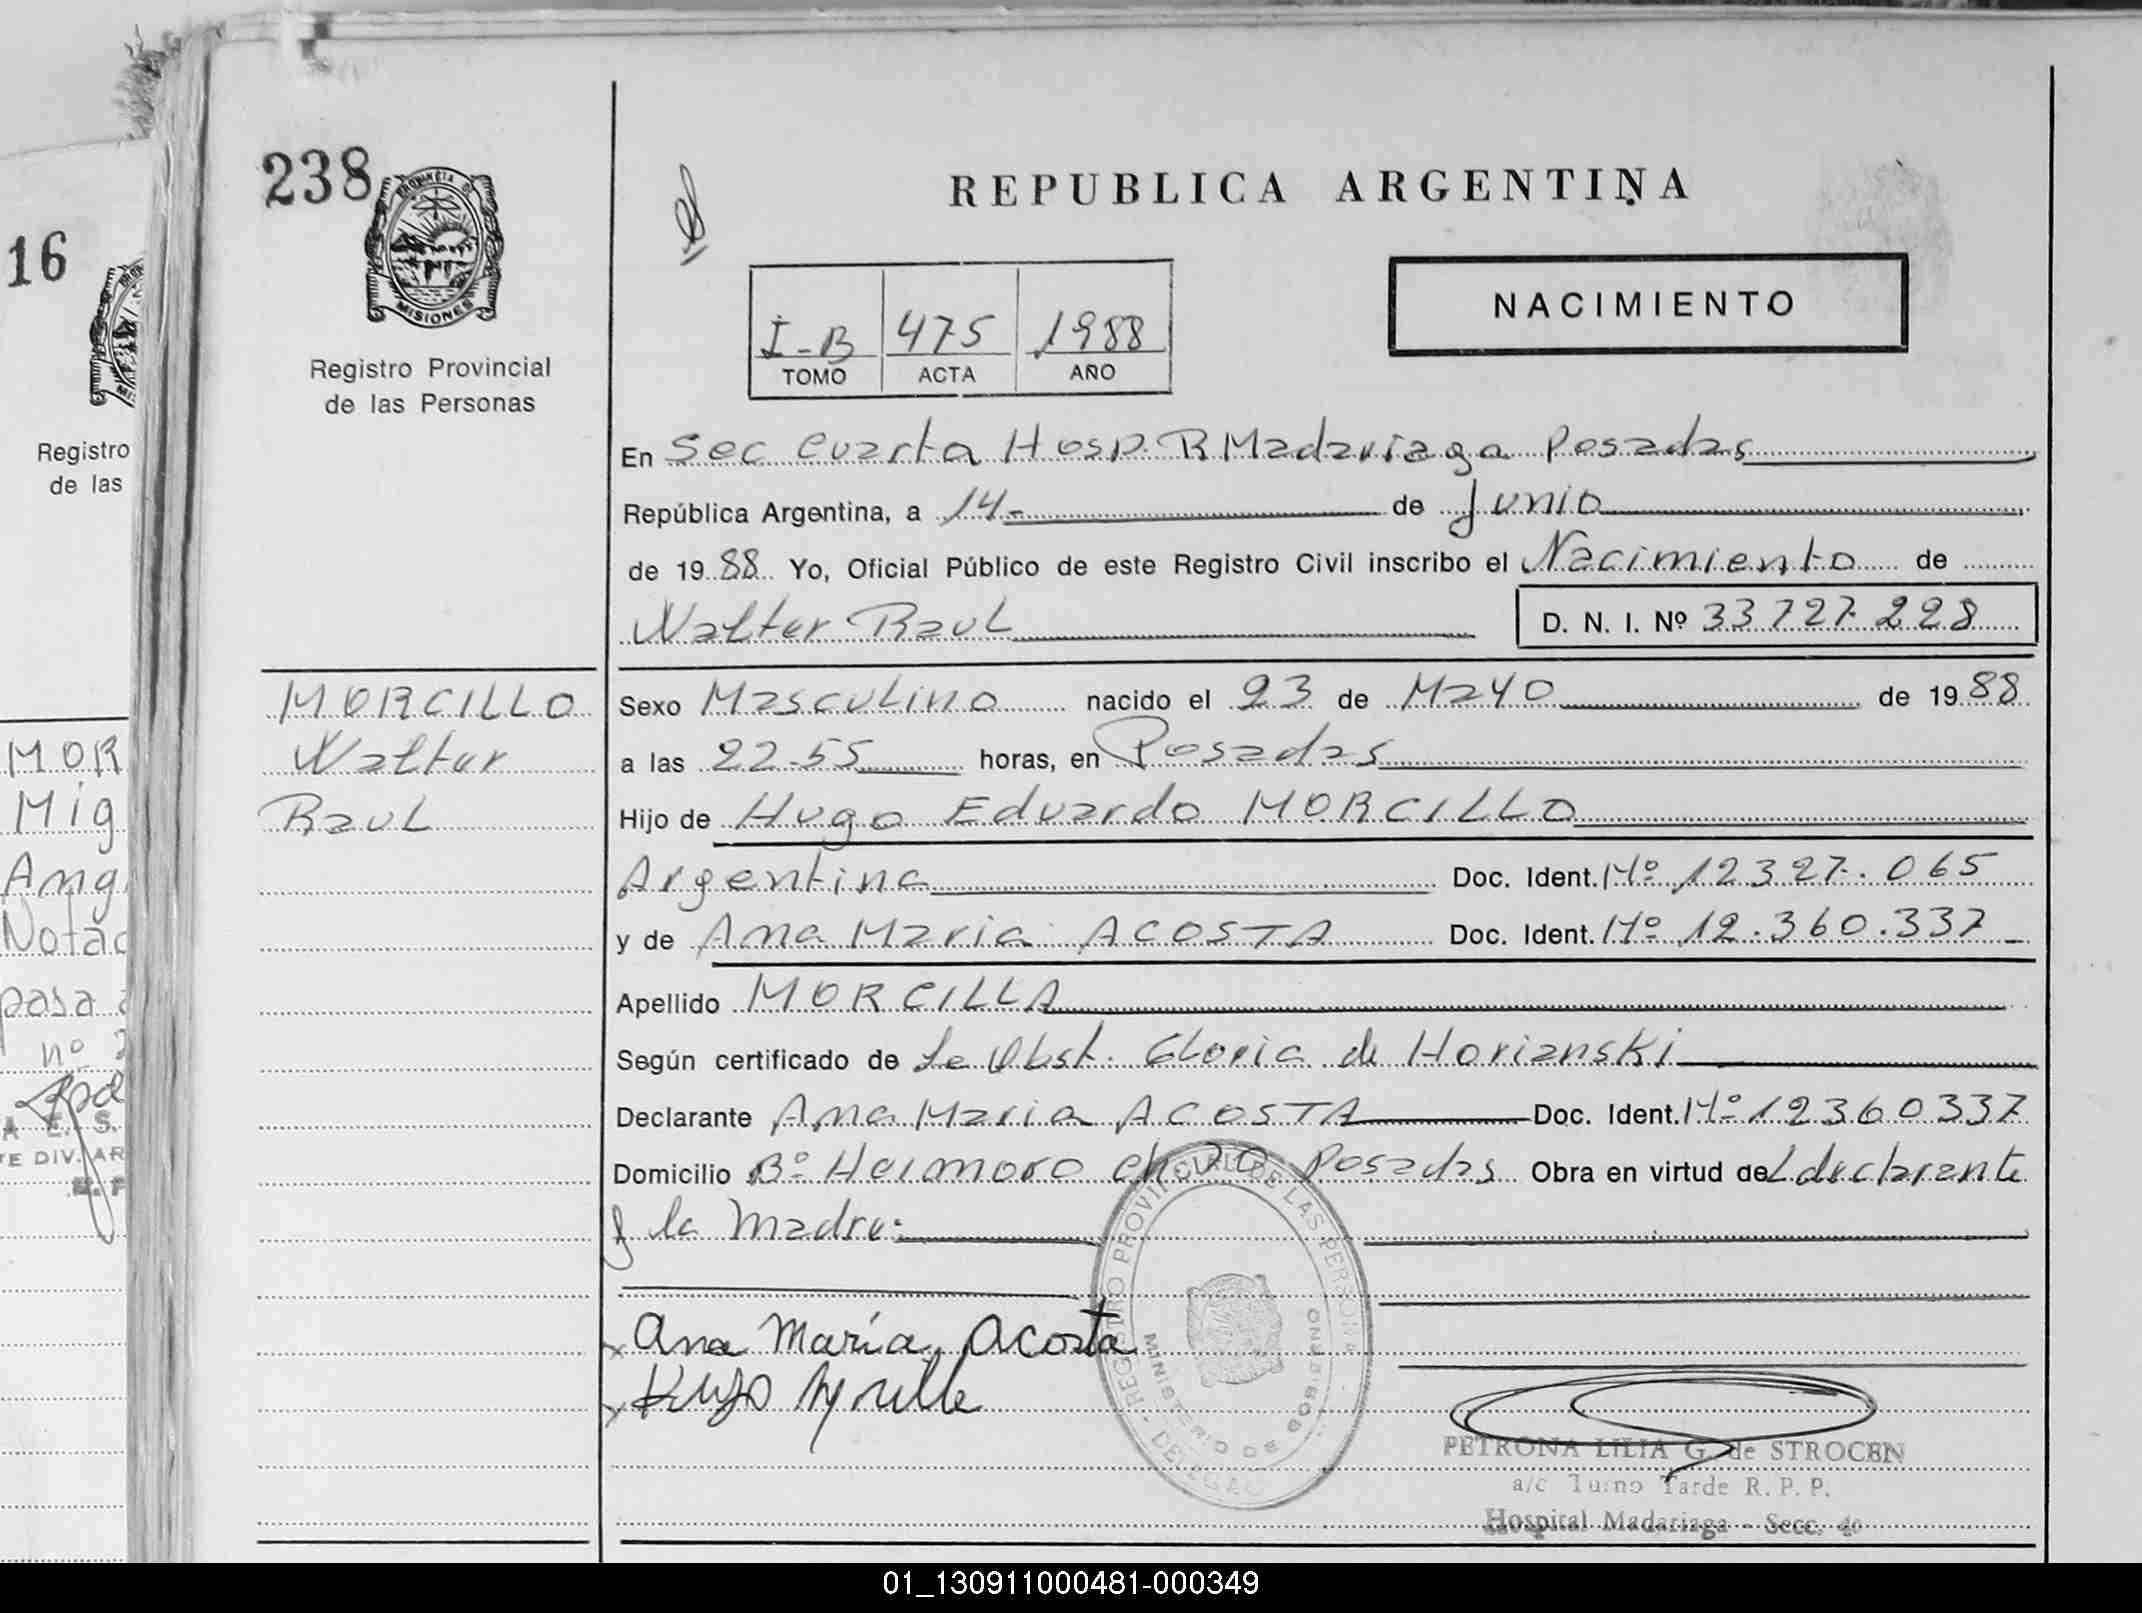 238
PROVINCIA DE
MISIONES
Registro Provincial
de las Personas
REPUBLICA ARGENTINA
NACIMIENTO
I-B 475 1988
TOMO ACTA AÑO
En Sec Cuarta Hosp. R Madariaga Posadas
República Argentina, a 14- de Junio
de 1988 Yo, Oficial Público de este Registro Civil inscribo el Nacimiento de
Walter Raul D. N. I. Nº 33727.228
MORCILLO
Walter
Raul
Sexo Masculino nacido el 23 de Mayo de 1988
a las 22-55 horas, en Posadas
Hijo de Hugo Eduardo MORCILLO
Argentina Doc. Ident. Mº 12327.065
y de Ana Maria ACOSTA Doc. Ident. Mº 12.360.337
Apellido MORCILLA
Según certificado de La Obst. Gloria de Horianski
Declarante Ana Maria ACOSTA Doc. Ident. Mº 12360337
Domicilio Bº Posadas Obra en virtud del declarante
y la Madre:
REGISTRO PROVINCIAL DE LAS PERSONAS
MINISTERIO DE GOBIERNO
Ana María Acosta
PETRONA LILIA G. de STROCEN
a/c Turno Tarde R. P. P.
Hospital Madariaga - Secc. 4º
16
Registro
de las
MOR
Mig
Ang
Notac
pasa a
nº 2
A E. S.
TE DIV. AR
01_130911000481-000349